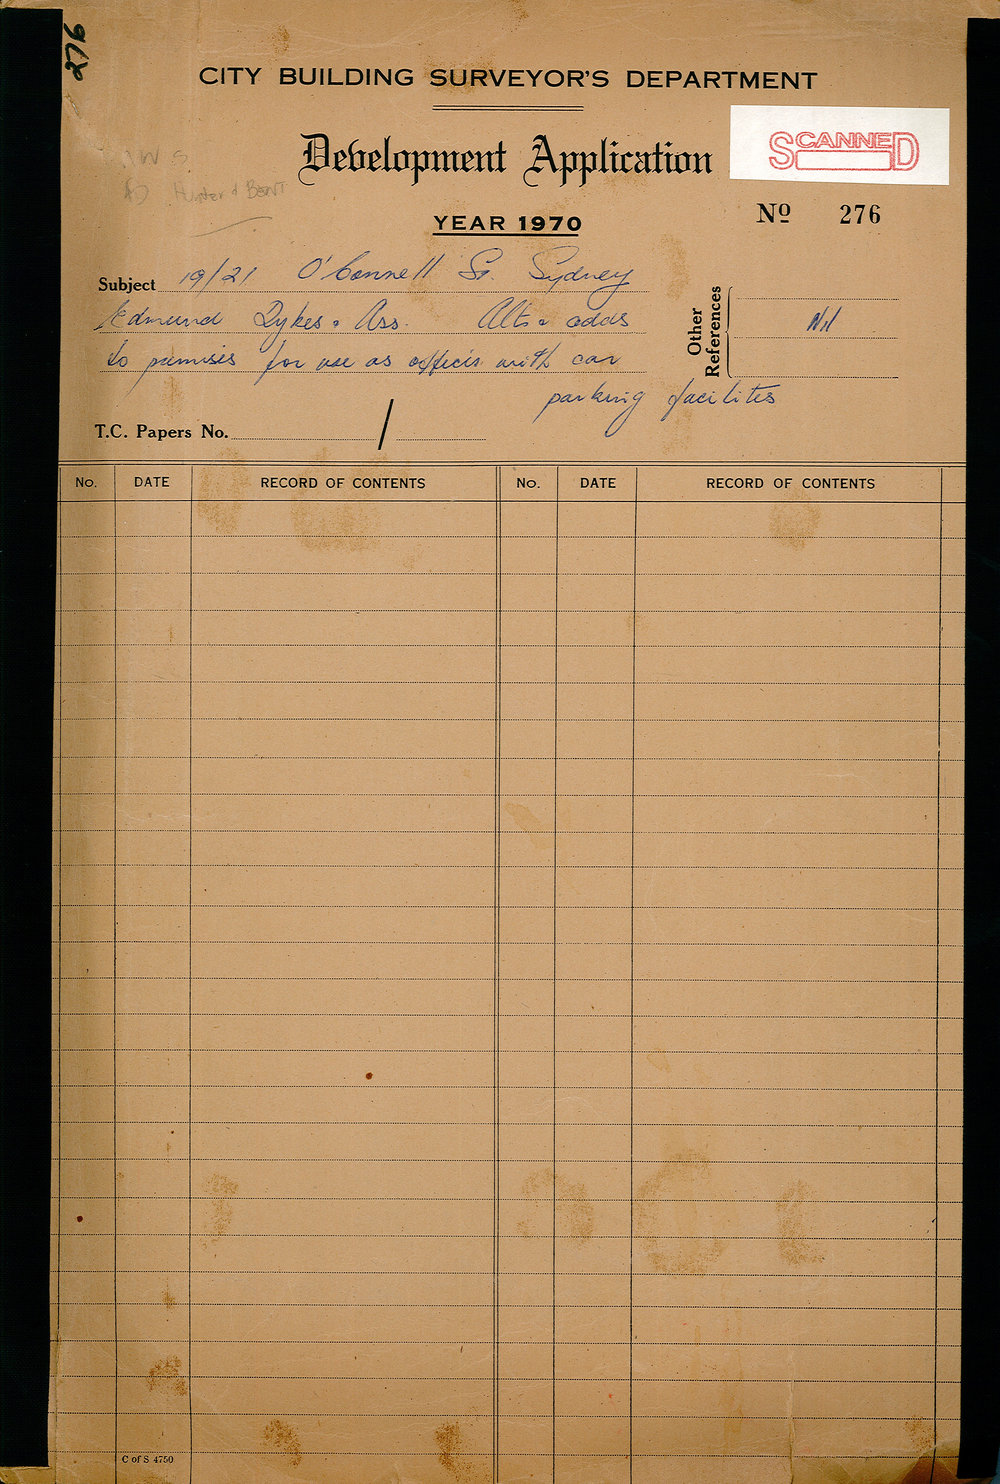 276
CITY BUILDING SURVEYOR'S DEPARTMENT
Development Application
SCANNED
YEAR 1970
No 276
Hunter & Bent
Subject 19/21 O'Connell St. Sydney
Edmund Dykes & Ass. Alts & adds
to premises for use as offices with car
parking facilites
Other References
Nil
T.C. Papers No. /
No. DATE RECORD OF CONTENTS No. DATE RECORD OF CONTENTS
C of S 4750